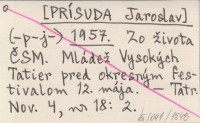 [PRÍSUDA Jaroslav]
(-p-j-) 1957. Zo života
ČSM. Mládež Vysokých
Tatier pred okresným fes-
tivalom 12. mája. — Tatr.
Nov. 4, nr 18: 2.